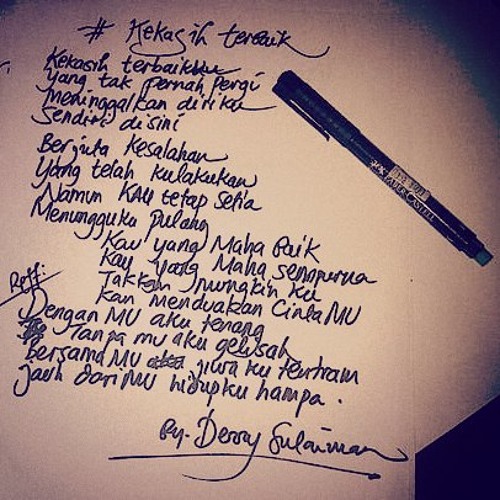 # Kekasih terbaik
Kekasih terbaikku
Yang tak pernah pergi
Meninggalkan diriku
Sendiri disini
Berjuta kesalahan
Yang telah kulakukan
Namun KAU tetap setia
Menungguku pulang
Kau yang Maha Baik
Kau yang Maha Sempurna
Reff: Takkan mungkin ku
kan menduakan Cinta MU
Dengan MU aku tenang
Tanpa mu aku gelisah
Bersama MU jiwa ku tentram
jauh dari MU hidupku hampa.
By. Derry Sulaiman
FABER-CASTELL